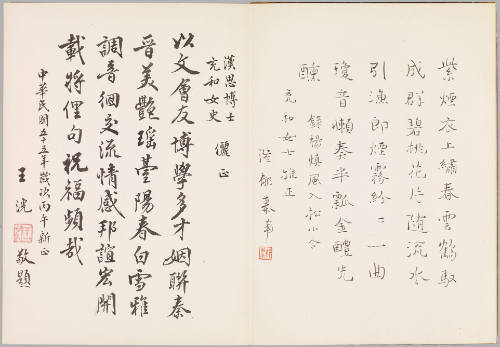 紫煙衣上繡春雲鶴馭
成群碧桃花片隨流水
引漁郎煙霧紛〻一曲
瓊音懶奏半瓢金醴先
醺
錄楊慎風入松小令
充和女士雅正
慕南
漢思博士
充和女史 儷正
以文會友博學多才姻聯秦
晉美艷瑤臺陽春白雪雅
調音徊交流情感邦誼宏開
載將俚句祝福頻哉
中華民國五十五年歲次丙午新正
王洸 敬題